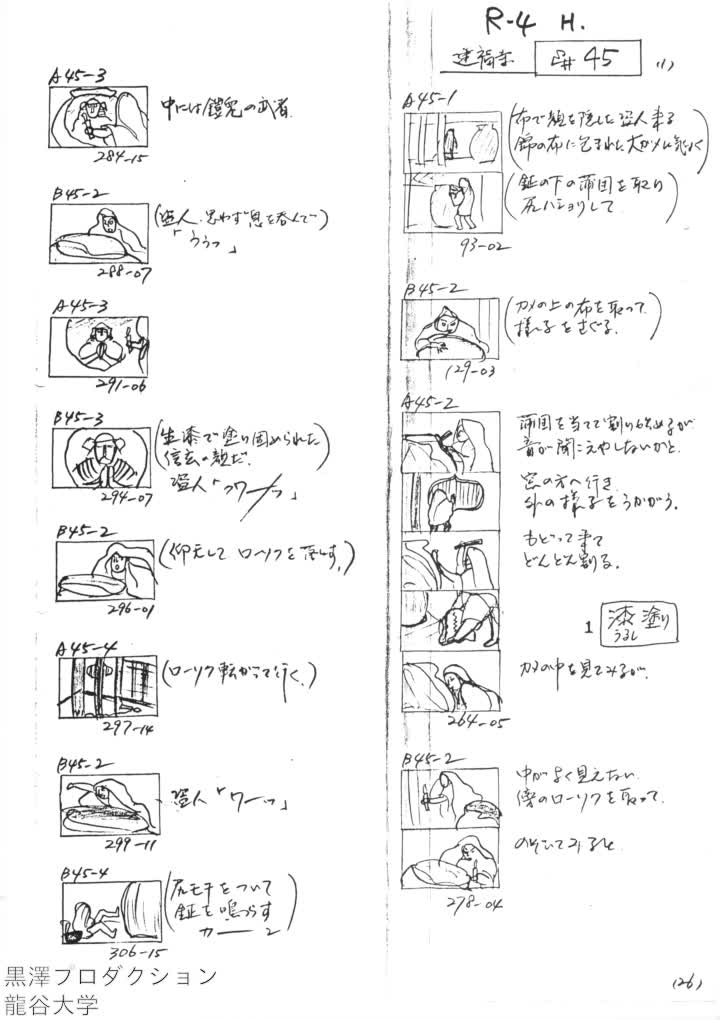 R-4 H.
建福寺 E# 45 (1)
A45-1
(布で顔を隠した盗人来る
錦の布に包まれた大ガメに気付く)
(鉦の下の蒲団を取り
尻ハショリして)
93-02
B45-2
(カメの上の布を取って
様子をさぐる。)
129-03
A45-2
蒲団を当てて割り始めるが
音が聞こえやしないかと
窓の方へ行き
外の様子をうかがう。
もどって来て
どんどん割る。
1 漆塗り
うるし
カメの中を見てみるが、
264-05
B45-2
中がよく見えない
傍のローソクを取って
のぞいてみると
278-04
A45-3
中には鎧兜の武者
284-15
B45-2
(盗人、思わず息を呑んで)
「ううっ」
288-07
A45-3
291-06
B45-3
(生漆で塗り固められた
信玄の顔だ。)
盗人「ワーッ」
294-07
B45-2
(仰天して ローソクを落す。)
296-01
A45-4
(ローソク転がって行く。)
297-14
B45-2
盗人「ワーッ」
299-11
B45-4
(尻モチをついて
鉦を鳴らす
カーーン)
306-15
(26)
黒澤プロダクション
龍谷大学